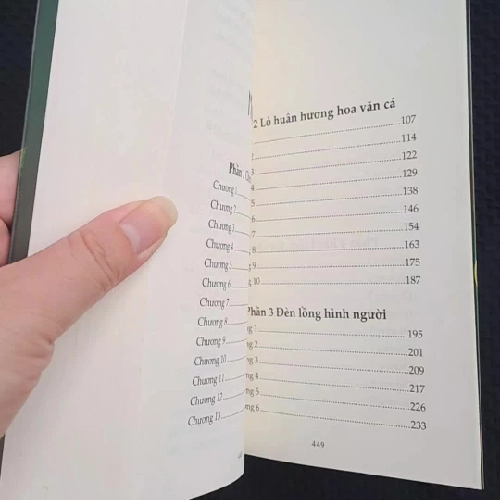 Phần
Chương 1
Chương 2
Chương 3
Chương 4
Chương
Chương 6
Chương 7
Chương 8
Chương 9
Chương 10
Chương 11
Chương 12
Chương 13
2 Lò huân hương hoa văn cá
107
114
3 122
4 129
5 138
6 146
7 154
g 8 163
g 9 175
g 10 187
Phần 3 Đèn lồng hình người
ng 1 195
ng 2 201
ng 3 209
ng 4 217
ng 5 226
ng 6 233
449